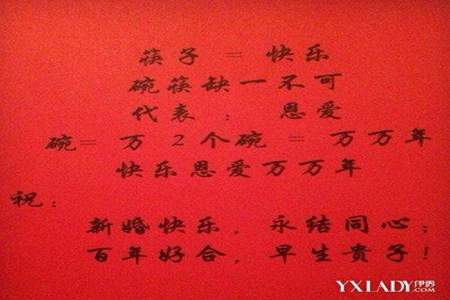 筷子 = 快乐
碗筷缺一不可
代表 : 恩爱
碗= 万 2个碗 = 万万年
快乐恩爱万万年
祝:
新婚快乐, 永结同心;
百年好合, 早生贵子!
YXLADY伊秀.COM